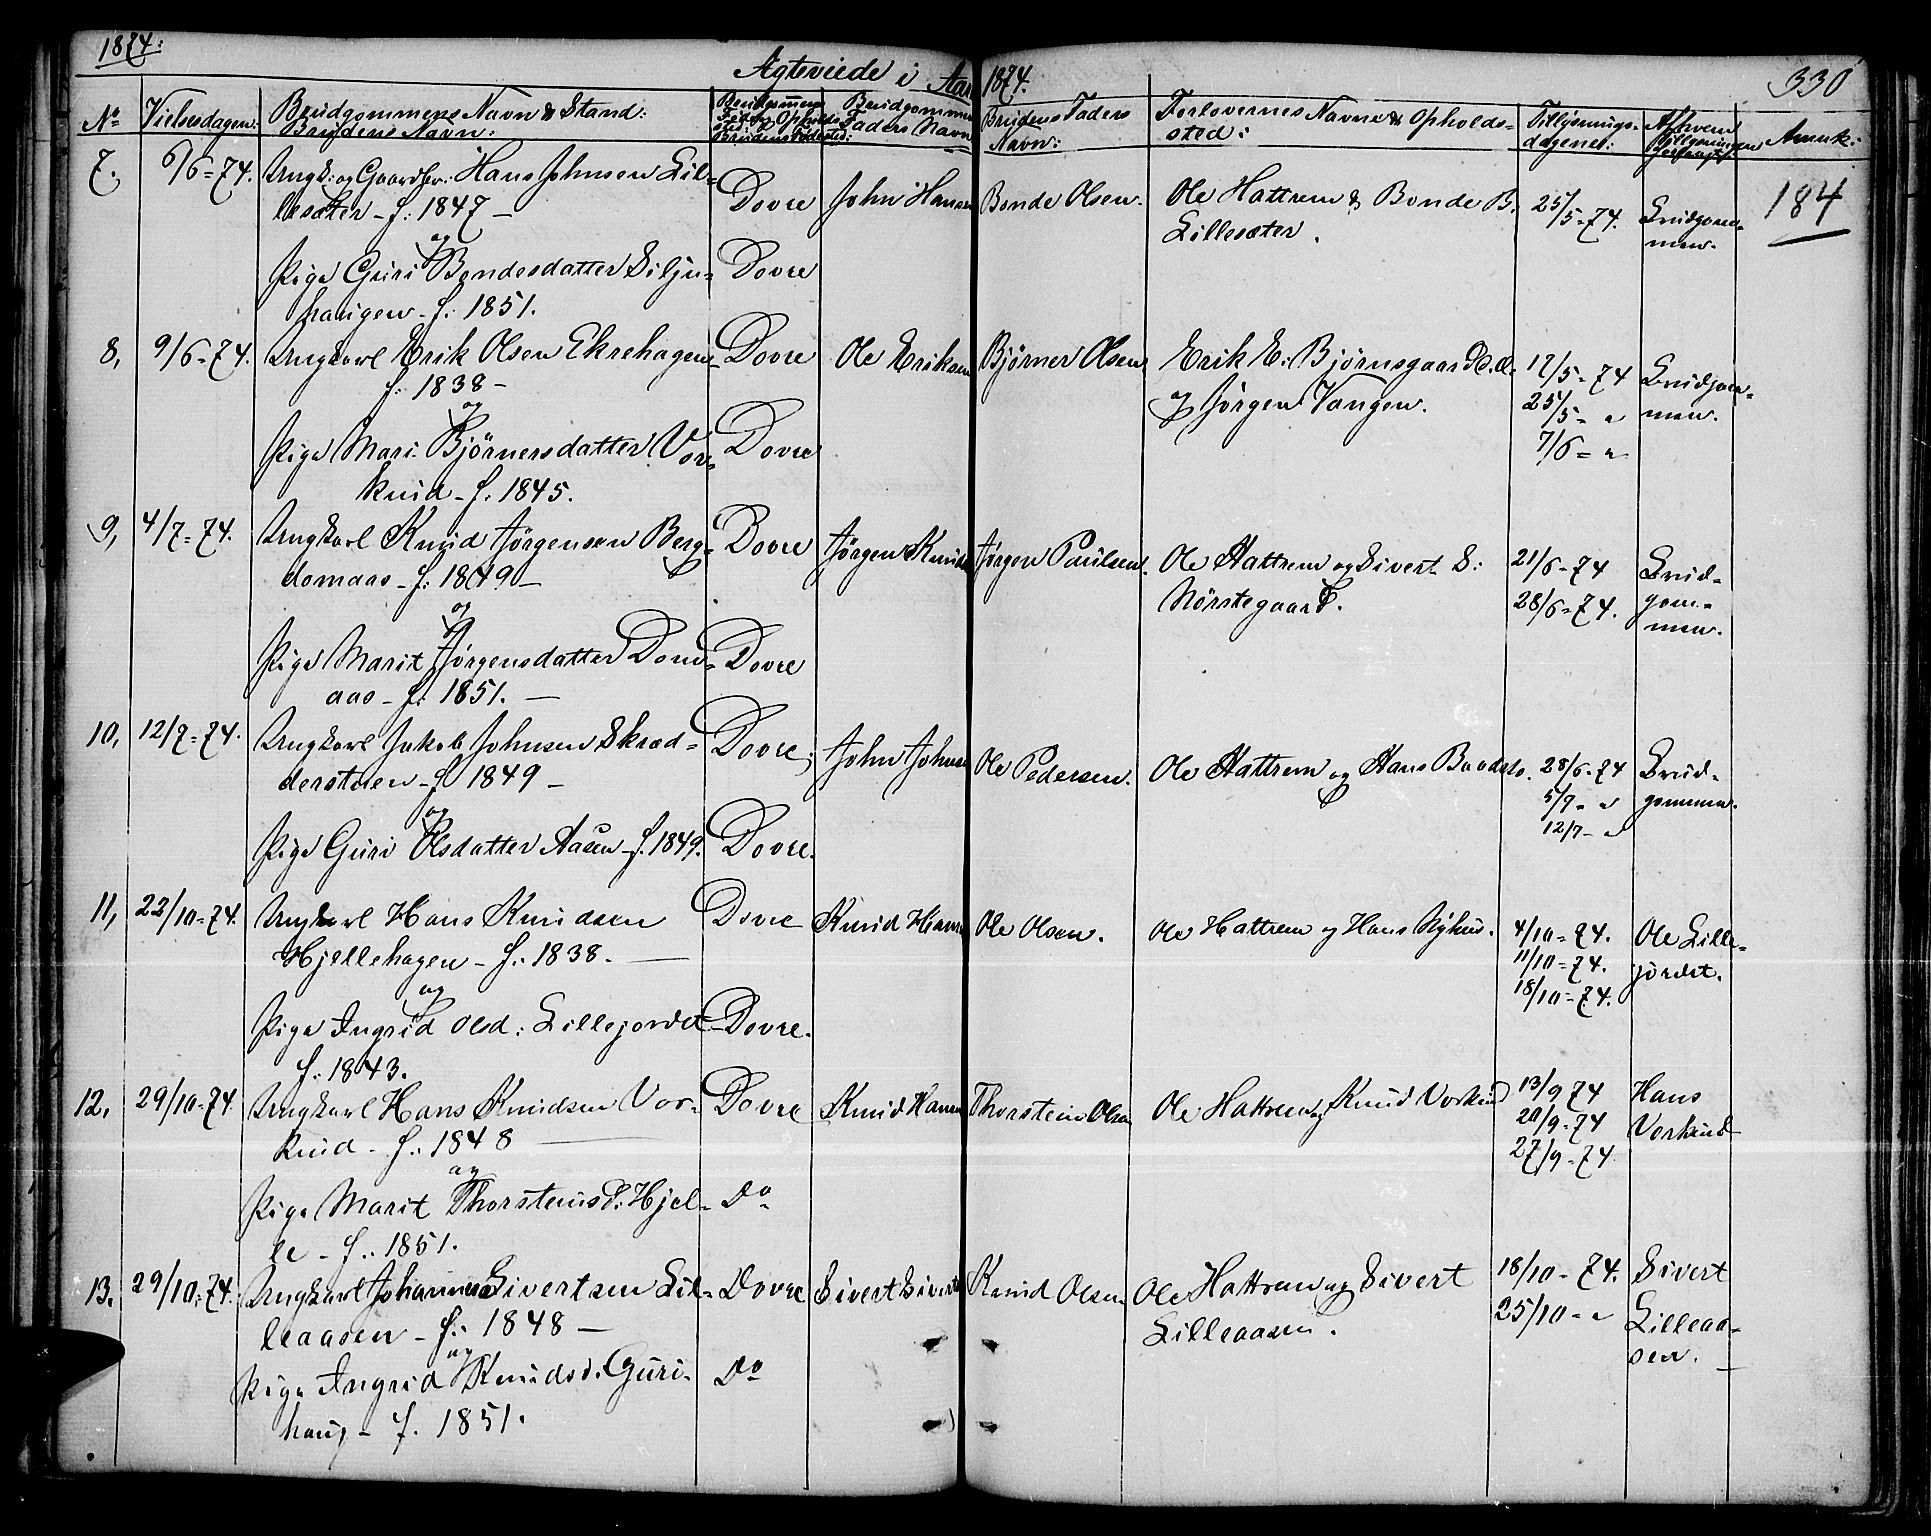 1874:
Ægteviede i Aar 1874.
330
No Vielsesdagen: Brudgommens Navn & Stand: Brudens Navn: Brudgommens Fader Navn Brudens Faders Navn: Forlovernes Navne & Opholdssted: Tillysningsdagene: Anmk:
7. 6/6-74. Ungk: og Gaardbr: Hans Johnsen Lil= Dovre John Hansen Bonde Olsen. Ole Hattrem & Bonde B. 25/5-74. Brudgom= 184
lesæter - f: 1847 - Lillesæter. men.
og
Pige Guri Bondesdatter Silju= Dovre
haugen - f: 1851.
8, 9/6-74. Ungkarl Erik Olsen Ekrehagen Dovre Ole Eriksen Bjørner Olsen Erik E. Bjørnsgaard 17/5-74 Brudgom=
f: 1838 - og Jørgen Vangen. 25/5- " men.
og 7/6- "
Pige Mari Bjørnersdatter Vor= Dovre
kuid - f. 1845.
9, 4/7-74. Ungkarl Knud Jørgensen Berg= Dovre Jørgen Knuds Jørgen Paulsen. Ole Hattrem og Sivert S: 21/6-74 Brud=
domaas - f: 1849 - Nørstegaard. 28/6-74. gom=
og men.
Pige Marit Jørgensdatter Dom= Dovre
aas - f. 1851. -
10, 12/7-74. Ungkarl Jakob Johnsen Skræd= Dovre John Johnse Ole Pedersen. Ole Hattrem og Hans Baadsto. 28/6-74 Brud=
derstuen - f 1849 - 5/7- " gommen.
og 12/7- "
Pige Guri Olsdatter Aasen - f. 1849. Dovre.
11, 22/10-74. Ungkarl Hans Knudsen Dovre Knud Hanse Ole Olsen. Ole Hattrem og Hans Nyhus. 4/10-74. Ole Lille=
Hjellehagen - f: 1838. - 11/10-74. jordet.
og 18/10-74.
Pige Ingrid Olsd: Lillejordet Dovre.
f: 1843.
12. 29/10-74 Ungkarl Hans Knudsen Vor= Dovre Knud Hansen Thorstein Olsen Ole Hattrem og Knud Vorkuid 13/9 74 Hans
kuid - f: 1848 20/9-74 Vorkuid
og 27/9-74.
Pige Marit Thorsteinsd. Hjel= Do
le - f: 1851.
13. 29/10-74. Ungkarl Johannes Sivertsen Lil= Dovre Sivert Siverts Knud Olsen Ole Hattrem og Sivert 18/10-74. Sivert
leaasen - f: 1848 - Lilleaasen. 25/10- " Lilleaa=
og sen. -
Pige Ingrid Knudsd. Guri= Do
haug - f. 1851.